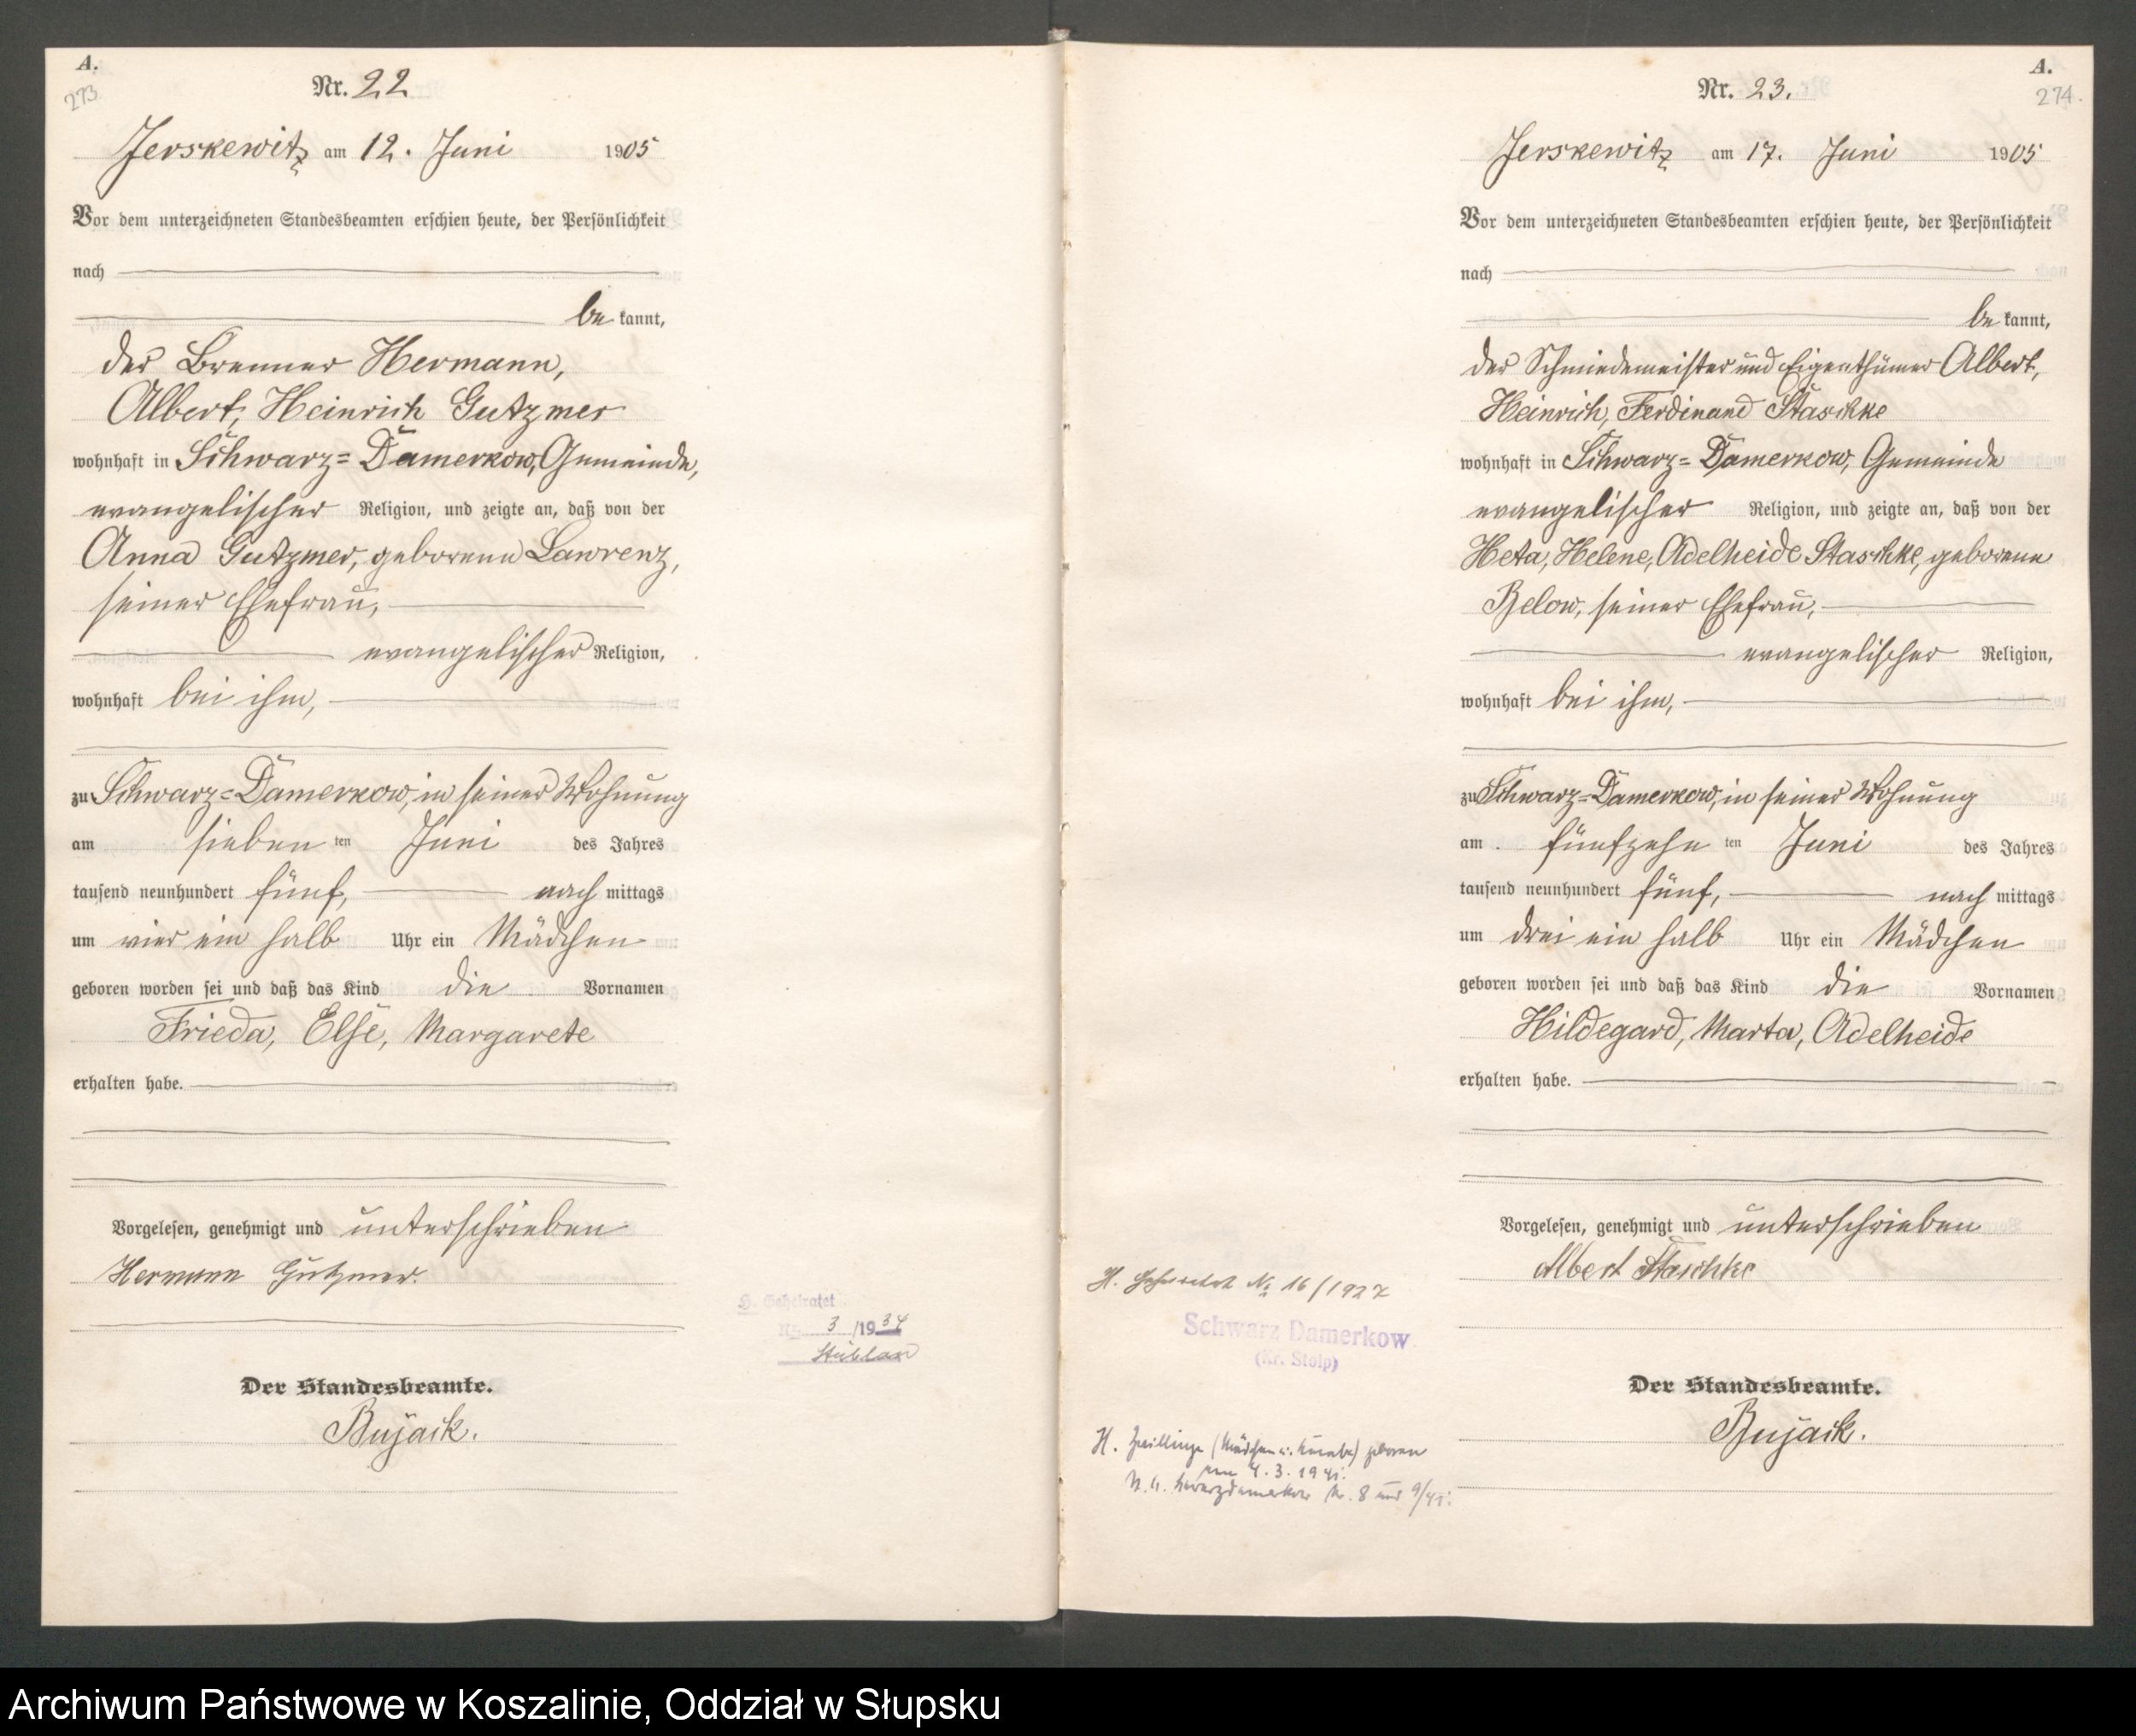 A.
273.
Nr. 22
Jerskewitz am 12. Juni 1905
Vor dem unterzeichneten Standesbeamten erschien heute, der Persönlichkeit
nach
be kannt,
der Brenner Hermann,
Albert, Heinrich Gutzmer
wohnhaft in Schwarz=Damerkow, Gemeinde,
evangelischer Religion, und zeigte an, daß von der
Anna Gutzmer, geborene Lawrenz,
seiner Ehefrau,
evangelischer Religion,
wohnhaft bei ihm,
zu Schwarz=Damerkow, in seiner Wohnung
am sieben ten Juni des Jahres
tausend neunhundert fünf, nach mittags
um vier ein halb Uhr ein Mädchen
geboren worden sei und daß das Kind die Vornamen
Frieda, Else, Margarete
erhalten habe.
Vorgelesen, genehmigt und unterschrieben
Hermann Gutzmer.
H. Geheiratet
Nr. 3 /1934
Stüblau
Der Standesbeamte.
Bujack.
A.
274.
Nr. 23.
Jerskewitz am 17. Juni 1905
Vor dem unterzeichneten Standesbeamten erschien heute, der Persönlichkeit
nach
be kannt,
der Schmiedemeister und Eigenthümer Albert,
Heinrich, Ferdinand Staschke
wohnhaft in Schwarz=Damerkow, Gemeinde
evangelischer Religion, und zeigte an, daß von der
Heta, Helene, Adelheide Staschke, geborene
Below, seiner Ehefrau,
evangelischer Religion,
wohnhaft bei ihm,
zu Schwarz=Damerkow, in seiner Wohnung
am fünfzehn ten Juni des Jahres
tausend neunhundert fünf, nach mittags
um drei ein halb Uhr ein Mädchen
geboren worden sei und daß das Kind die Vornamen
Hildegard, Marta, Adelheide
erhalten habe.
Vorgelesen, genehmigt und unterschrieben
Albert Staschke
H. Geheiratet No 16/1927
Schwarz Damerkow
(Kr. Stolp)
Der Standesbeamte.
Bujack.
H. Zwillinge (Mädchen u. Knabe) geboren
am 4.3.1941.
Schwarzdamerkow Nr. 8 und 9/41.
Archiwum Państwowe w Koszalinie, Oddział w Słupsku